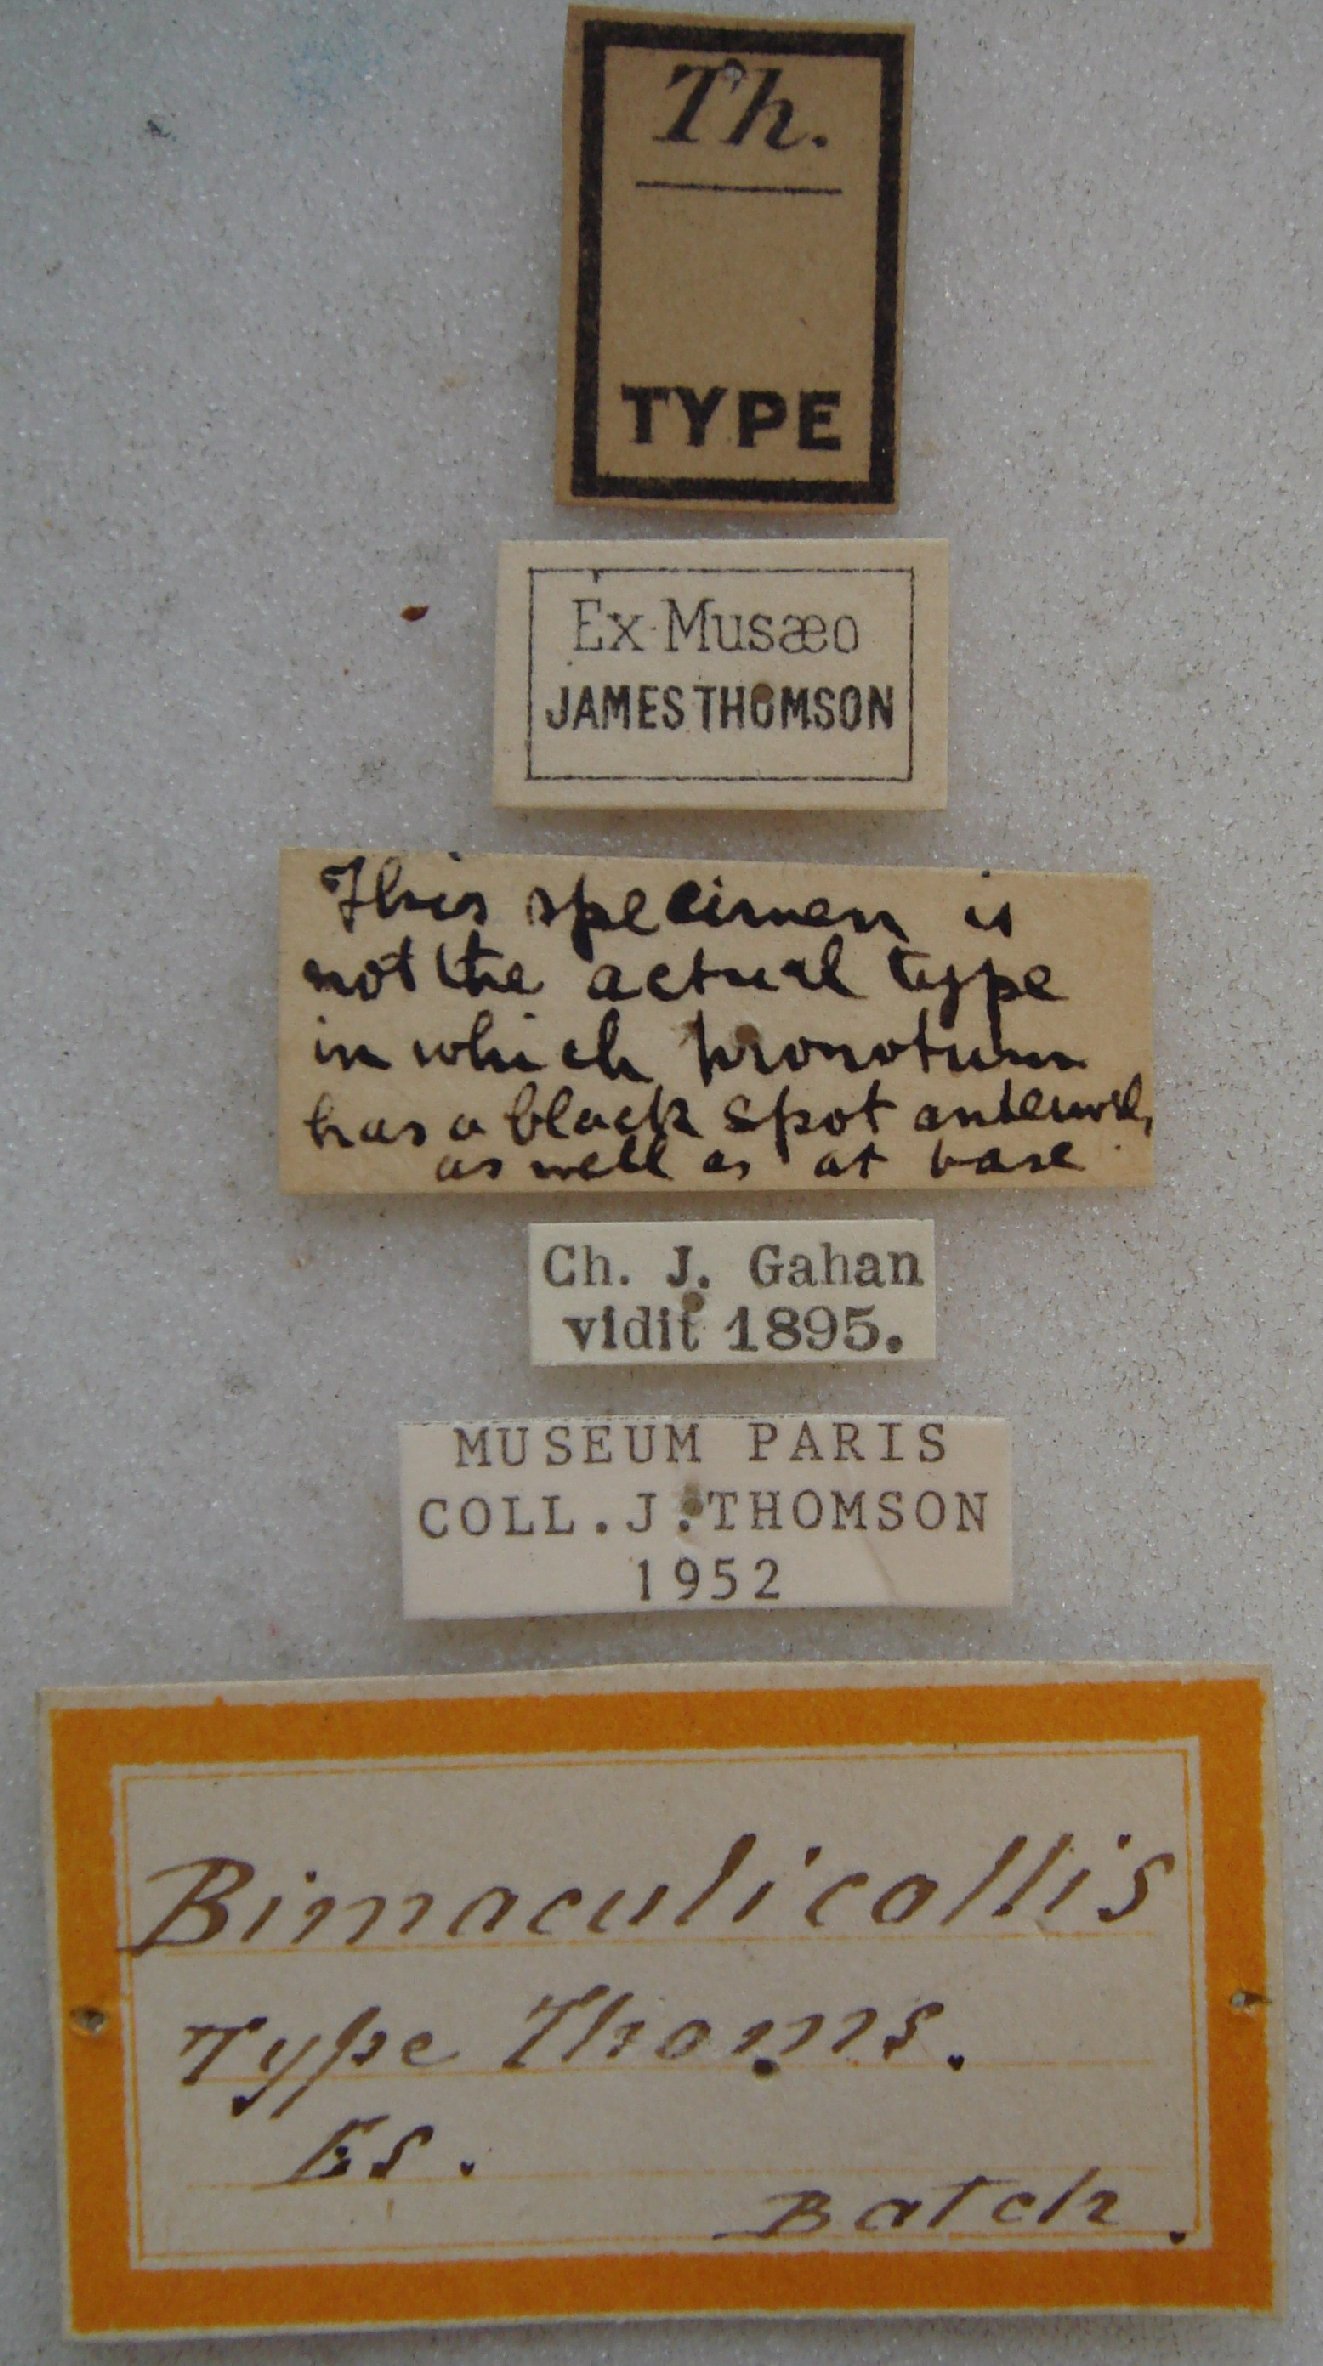 Th.
TYPE
Ex Musæo
JAMES THOMSON
This specimen is
not the actual type
in which pronotum
has a black spot anteriorly,
as well as at base
Ch. J. Gahan
vidit 1895.
MUSEUM PARIS
COLL. J. THOMSON
1952
Bimaculicollis
Type Thoms.
Es.
Batch.